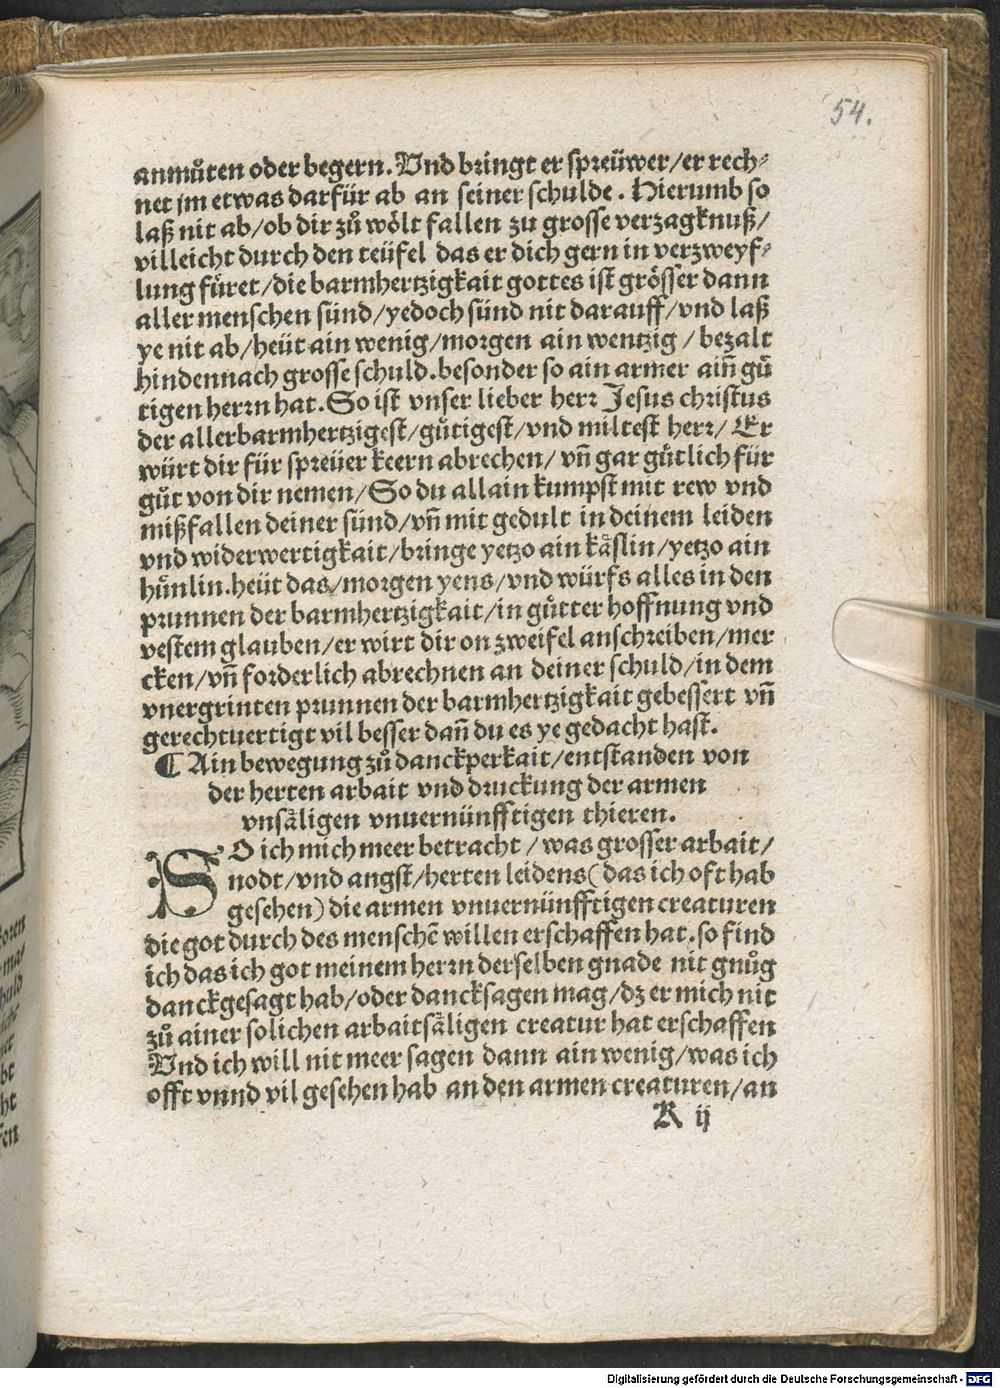 54.
anmůten oder begern. Vnd bringt er spreüwer/er rech⸗
net jm etwas darfür ab an seiner schulde. Hierumb so
laß nit ab/ob dir zů wölt fallen zu grosse verzagknuß/
villeicht durch den teüfel das er dich gern in verzweyf⸗
lung füret/die barmhertzigkait gottes ist grösser dann
aller menschen sünd/yedoch sünd nit darauff/vnd laß
ye nit ab/heüt ain wenig/morgen ain wentzig/bezalt
hindennach grosse schuld. besonder so ain armer ain̄ gů
tigen herrn hat. So ist vnser lieber herr Jesus christus
der allerbarmhertzigest/gůtigest/vnd miltest herr/Er
würt dir für spreüer keern abrechen/vn̄ gar gůtlich für
gůt von dir nemen/So du allain kumpst mit rew vnd
mißfallen deiner sünd/vn̄ mit gedult in deinem leiden
vnd widerwertigkait/bringe yetzo ain kåßlin/yetzo ain
hůnlin. heüt das/morgen yens/vnd würfs alles in den
prunnen der barmhertzigkait/in gůtter hoffnung vnd
vestem glauben/er wirt dir on zweifel anschreiben/mer
cken/vn̄ forderlich abrechnen an deiner schuld/in dem
vnergrinten prunnen der barmhertzigkait gebessert vn̄
gerechtuertigt vil besser dan̄ du es ye gedacht hast.
¶ Ain bewegung zů danckperkait/entstanden von
der herten arbait vnd druckung der armen
vnsåligen vnuernünfftigen thieren.
SO ich mich meer betracht/was grosser arbait/
nodt/vnd angst/herten leidens(das ich oft hab
gesehen) die armen vnuernünfftigen creaturen
die got durch des menschē willen erschaffen hat. so find
ich das ich got meinem herrn derselben gnade nit gnůg
danckgesagt hab/oder dancksagen mag/dz er mich nit
zů ainer solichen arbaitsåligen creatur hat erschaffen
Vnd ich will nit meer sagen dann ain wenig/was ich
offt vnnd vil gesehen hab an den armen creaturen/an
K ij
Digitalisierung gefördert durch die Deutsche Forschungsgemeinschaft - DFG